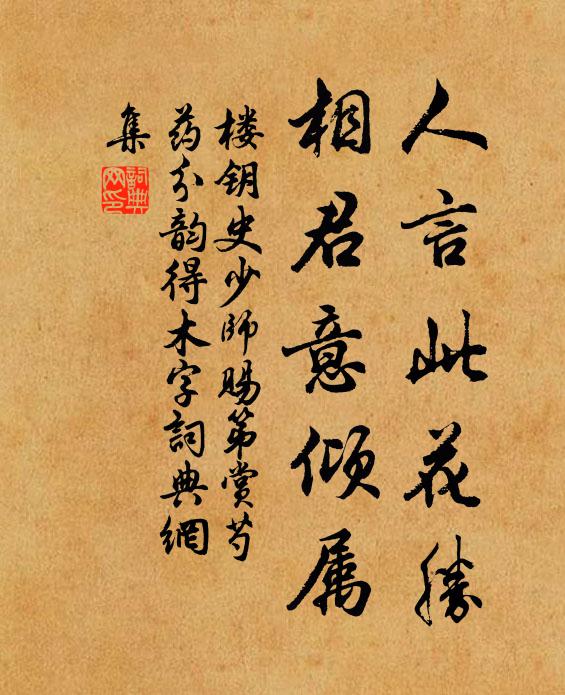 人言此花勝
相君意倾属
楼钥史少師賜第賞芍
药分韵得木字詞典網
集
詞典网印